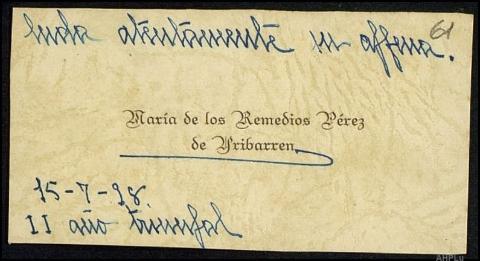 luda atentamente su affma.
61
María de los Remedios Pérez
de Yribarren
15-7-98.
II año triunfal
AHPLu